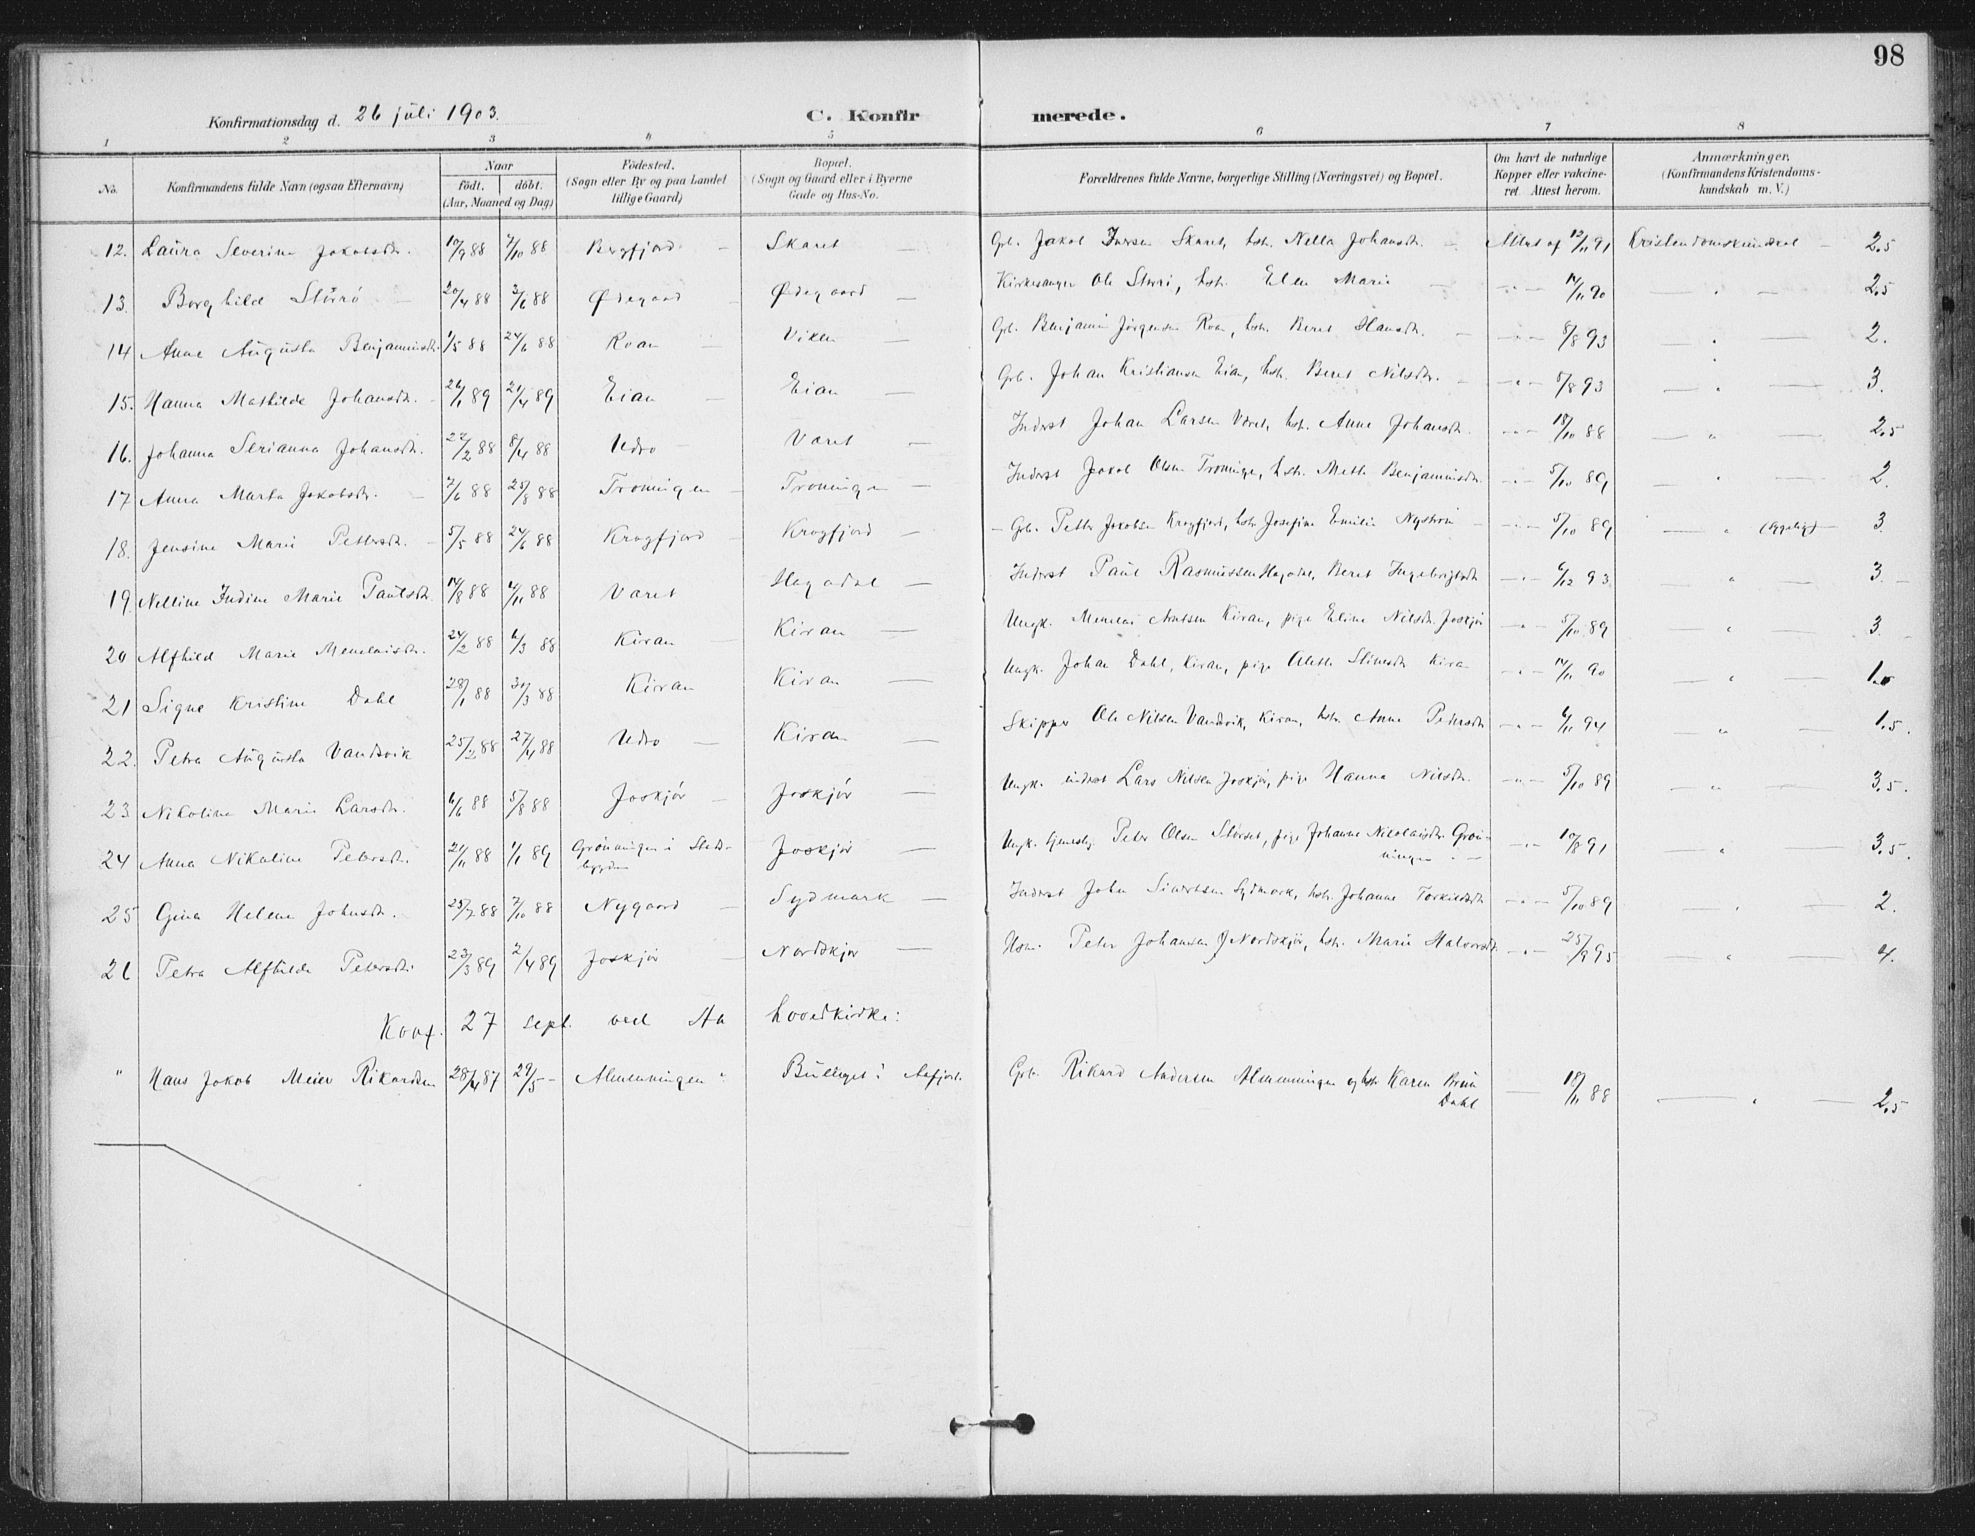 98
Konfirmationsdag d. 26 juli 1903. C. Konfirmerede.
1 2 3 4 5 6 7 8
No. Konfirmandens fulde Navn (ogsaa Efternavn) Naar født. døbt. (Aar, Maaned og Dag) Fødested. (Sogn eller By og paa Landet tillige Gaard) Bopæl. (Sogn og Gaard eller i Byerne Gade og Hus-No. Forældrenes fulde Navne, borgerlige Stilling (Næringsvei) og Bopæl. Om havt de naturlige Kopper eller vakcineret. Attest herom. Anmærkninger. (Konfirmandens Kristendomskundskab m. V.)
12. Laura Severine Jakobsdr. 10/9 88 7/10 88 Bergfjord Skaret Grb. Jakob Iversen Skaret, hstr. Nella Johansdr. Attest af 12/11 91 Kristendomskundskab 2.5
13. Borghild Størrø 20/4 88 3/6 88 Ødegaard Ødegaard Kirkesanger Ole Størrø, hstr. Elen Marie 14/11 90 " 2.5
14 Anne Augusta Benjaminsdr. 1/5 88 24/6 88 Roan Viken Grb. Benjamin Jørgensen Roan, hstr. Beret Hansdr. 8/8 93 " 2.
15. Hanna Mathilde Johansdr. 26/1 89 21/4 89 Eian Eian Grb. Johan Kristiansen Eian, hstr. Beret Nilsdr. 5/8 93 " 3.
16. Johanna Serianna Johansdr. 22/2 88 8/4 88 Udro Været Inderst Johan Larsen Været, hst. Anne Johansdr. 18/10 88 " 2.5
17 Anna Marta Jakobsdr. 7/6 88 25/8 88 Troningen Troningen Inderst Jakob Olsen Troninge, hstr. Meth Benjaminsdr. 5/10 89 " 2.
18. Jensine Marie Petersdr. 5/5 88 24/6 88 Krogfjord Krogfjord Grb. Petter Jakobsen Krogfjord, hstr. Josefine Emilie Nystrøm 5/10 89 " 3.
19. Nelline Indine Marie Paulsdr. 14/8 88 4/11 88 Været Hagadal Inderst Paul Rasmussen Hagadal, Beret Ingebrigtsdr 6/12 93 " 3.
20 Alfhild Marie Menelaisdr. 24/2 88 6/3 88 Kiran Kiran Ungk. Menelai Antsen Kiran, pige Eline Nilsdr. Joskjør 5/10 89 " 3.
21 Signe Kristine Dahl 28/1 88 30/3 88 Kiran Kiran Ungk. Johan Dahl, Kiran, pige Kiran 14/11 90 "
22. Petra Augusta Vandsvik 25/2 88 27/4 88 Udro Kiran Skipper Ole Nilsen Vandsvik, Kiran, hstr. Anne Petersdr 6/11 94 " 1.5.
23 Nikoline Marie Larsdr. 6/6 88 5/8 88 Joskjør Joskjør Ungk. inderst Lars Nilsen Joskjør, pige Hanna Nilsdr. 5/10 89 " 3.5.
24 Anna Nikoline Petersdr. 21/11 88 1/1 89 Grønningen i Stadsbygden Joskjør Ungk. Peter Olsen Størset, pige Johanne Nicolaisdr Grønningen 10/8 91 " 3.5.
25 Gina Helene Johnsdr. 25/7 88 7/10 88 Nygaard Sydmark Inderst John Sivertsen Sydmark, hstr. Johanne Torkildsdr 5/10 89 " 2.
26 Petra Alfhilde Petersdr. 23/3 89 2/4 89 Joskjør Nordskjør Hsm. Peter Johansen Nordskjør, hstr. Marie Halvorsdr. 25/9 95 " 4.
Konf. 27 sept. ved Aa hovedkirke:
" Hans Jakob Meier Rikardsen 28/4 87 29/5 – Almenningen Aafjord. Grb. Rikard Andersen Almenningen og hstr Karen Dahl 18/11 88 " 2.5